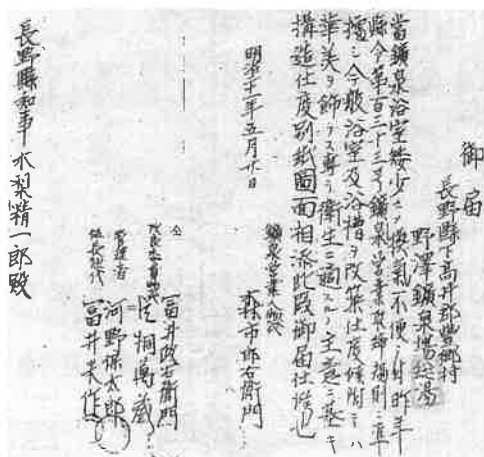 御届
長野縣下高井郡豊郷村
野澤鑛泉場總湯
當鑛泉浴室矮少ニテ換氣不便ニ付昨年
縣令第百三十三号鑛泉営業取締規則ニ準
據シ今般浴室及浴槽ヲ改築仕度候附テハ
華美ヲ飾ラス専ラ衛生ニ適スルノ主意ニ基キ
構造仕度別紙圖面相添此段御届仕候也
明治 年五月 日
鑛泉営業人惣代
森市郎右衛門
仝
富井政右衛門
萬蔵
管理者
河野保太郎
富井夫作
長野縣知事木梨精一郎殿